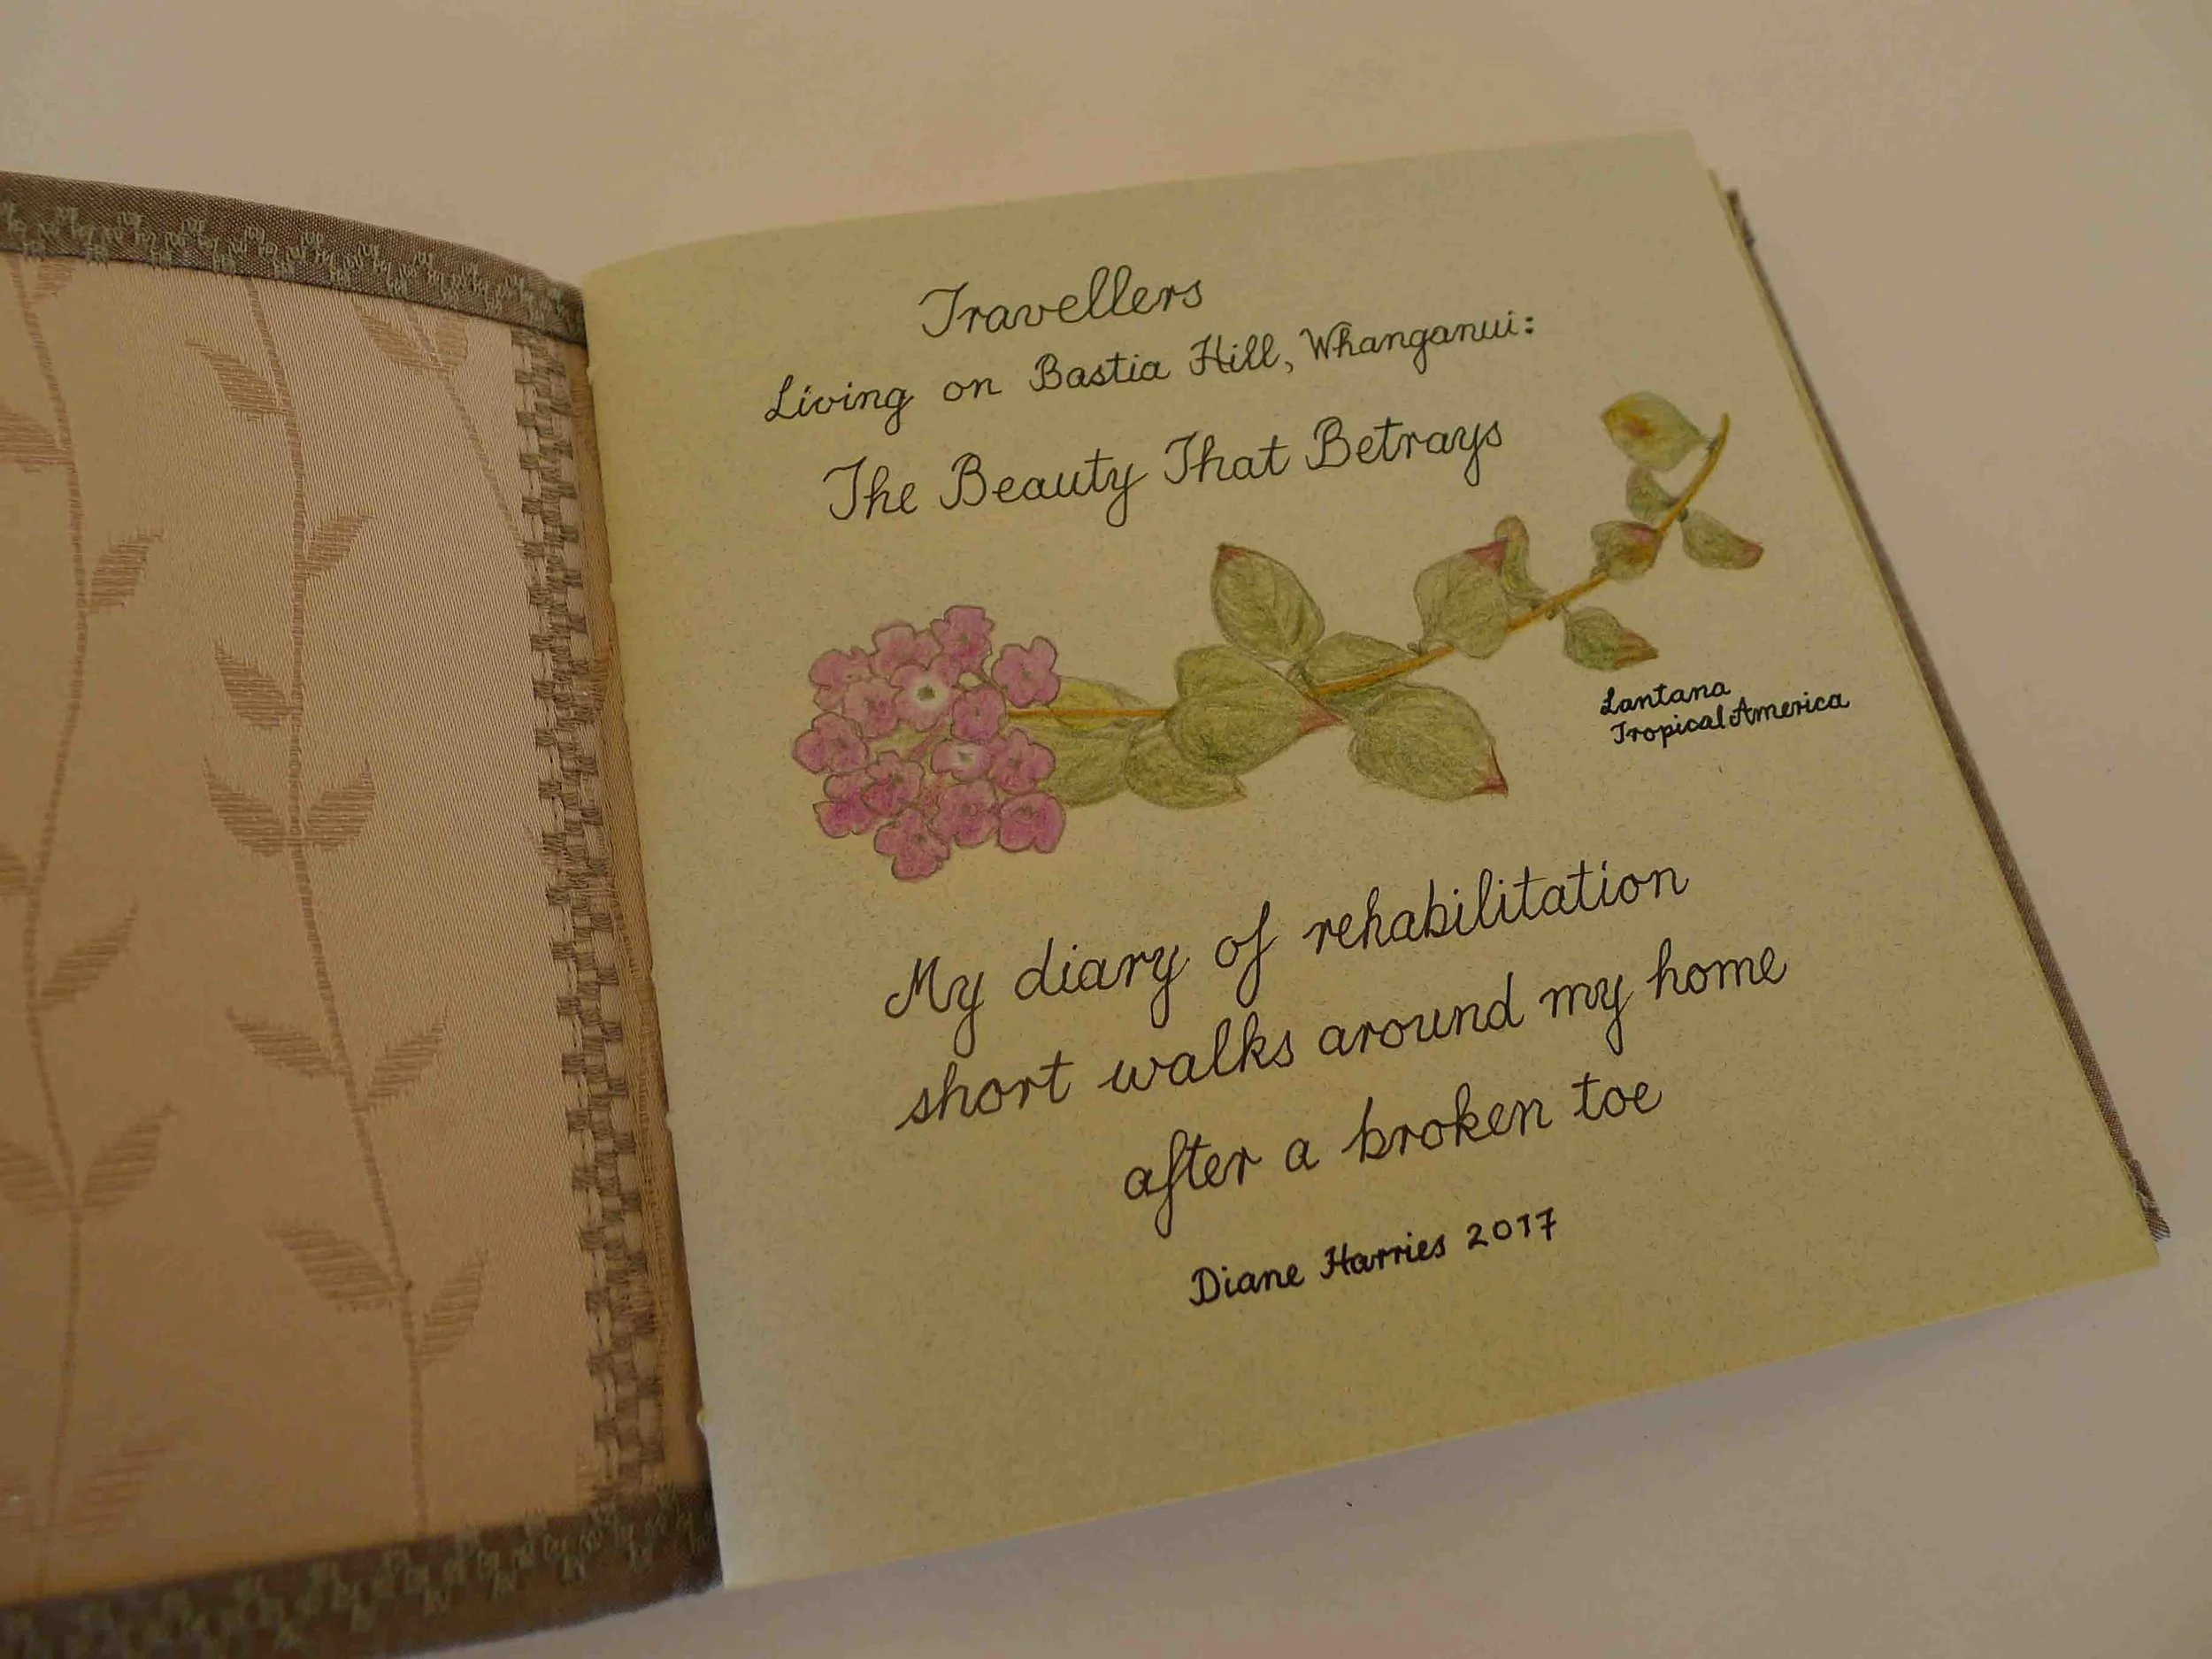 Travellers
Living on Bastia Hill, Whanganui:
The Beauty That Betrays
Lantana
Tropical America
My diary of rehabilitation
short walks around my home
after a broken toe
Diane Harries 2017